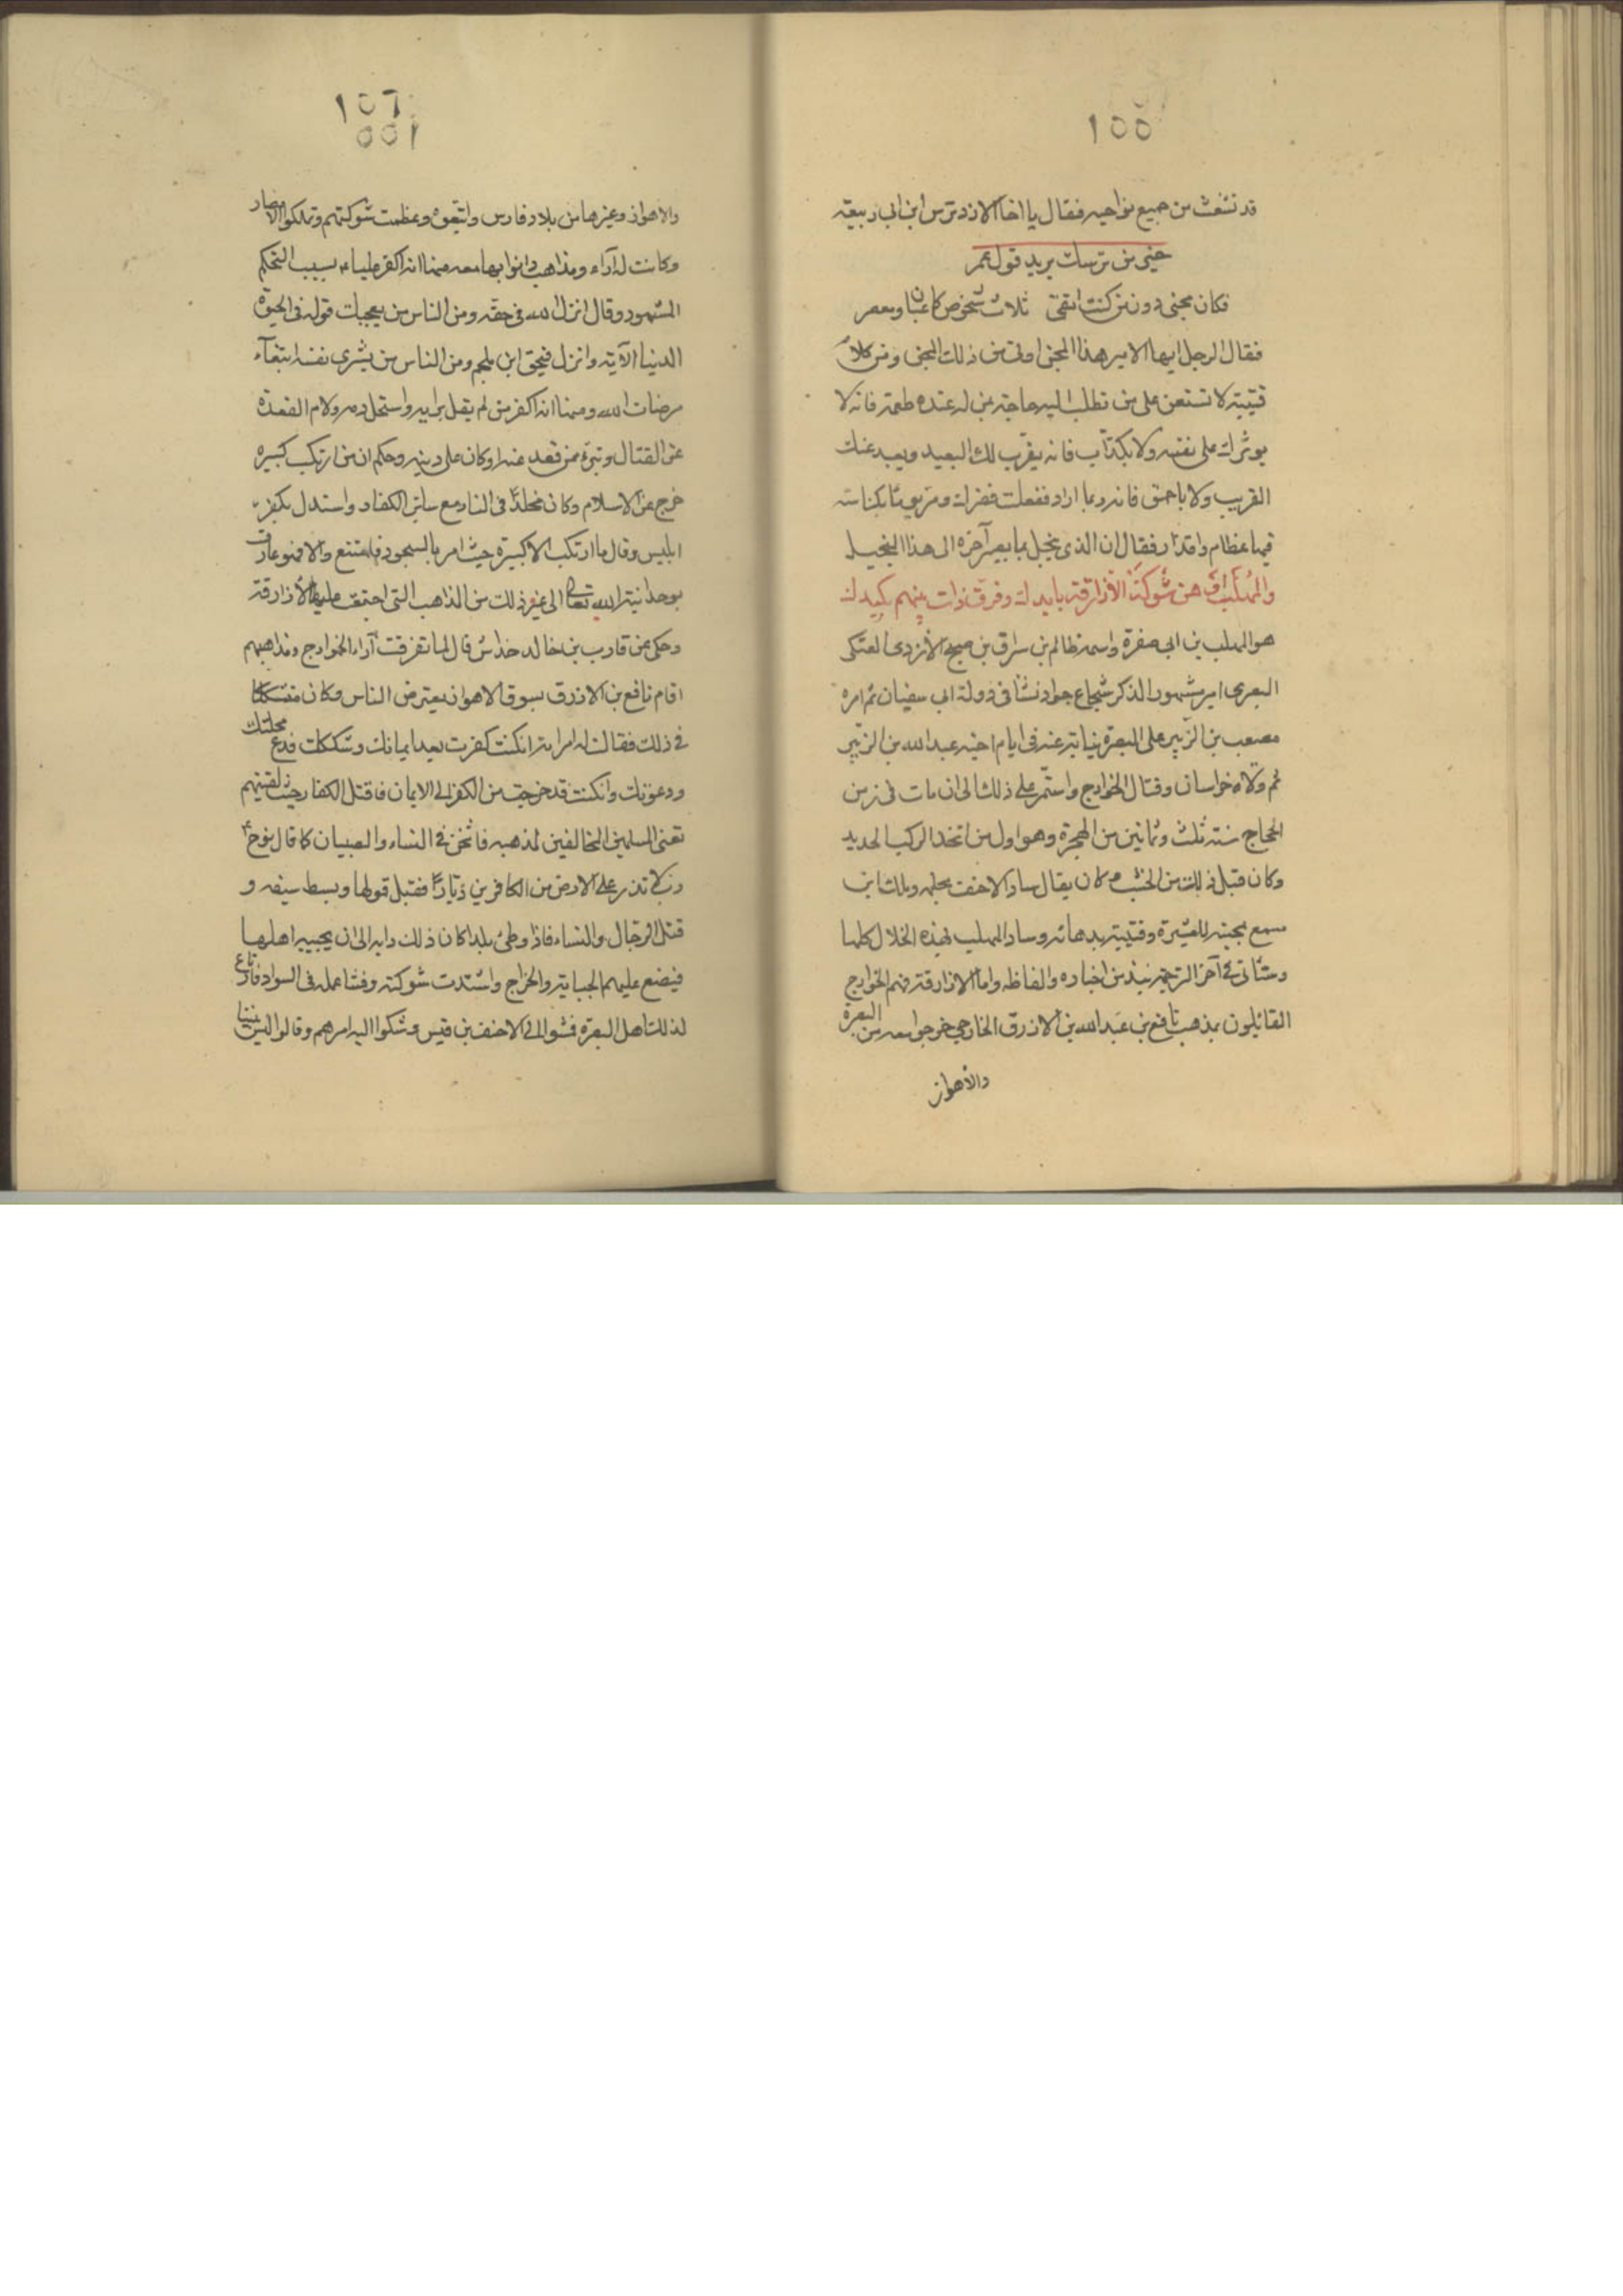 ١٥٥
قد تشعث من جميع نواحيه فقال يا اخا الازد ترس ابن ابى ربيعة
خير من ترسك يريد قول عمر
فكان مجنى دون من كنت اتقى ثلاث شخوص كاعبان ومعصر
فقال الرجل ايها الامير هذا المجن اوفى من ذلك المجن ومن كلام
قتيبة لا تستعن على من تطلب اليه حاجة بمن له عنده طعمة فانه لا
يوثرك على نفسه ولا بكذاب فانه يقرب لك البعيد ويبعد عنك
القريب ولا باحمق فانه ربما اراد نفعك فضرك ومر يوما بكناسة
فيها عظام واقذار فقال ان الذى يبخل بما يصير آخره الى هذا لبخيل
والمهلب اوهن شوكة الازارقة بايدك وفرق ذات بينهم بكيدك
هو المهلب بن ابى صفرة واسمه ظالم بن سراق بن صبح الازدى العتكى
البصرى امير مشهور الذكر شجاع جواد نشأ فى دولة ابى سفيان ثم امره
مصعب بن الزبير على البصرة نيابة عنه فى ايام اخيه عبد الله بن الزبير
ثم ولاه خراسان وقتال الخوارج واستمر على ذلك الى ان مات فى زمن
الحجاج سنة ثلث وثمانين من الهجرة وهو اول من اتخذ الركب الحديد
وكان قبل ذلك من الخشب وكان يقال ساد الاحنف بحلمه ومالك ابن
مسمع بمحبته للعشيرة وقتيبة بدهائه وساد المهلب بهذه الخلال كلها
وستأتى فى آخر الترجمة نبذ من اخباره والفاظه واما الازارقة فهم الخوارج
القائلون بمذهب نافع بن عبد الله بن الازرق الخارجى خرجوا معه من البصرة
والأهواز
١٥٦
١٥٥
والاهواز وغيرها من بلاد فارس واتبعوه وعظمت شوكتهم وتملكوا الامصار
وكانت له آراء ومذاهب دانوا بها معه منها انه اكفر عليا بسبب التحكم
المشهود وقال انزل الله فى حقه ومن الناس من يعجبك قوله فى الحيوة
الدنيا الآية وانزل فى حق ابن ملجم ومن الناس من يشرى نفسه ابتغآء
مرضات الله ومنها انه اكفر من لم يقل برايه واستحل دمه ولام القعدة
عن القتال وتبرء ممن قعد عنه او كان على دينه وحكم ان من ارتكب كبيرة
خرج عن الاسلام وكان مخلدا فى النار مع سائر الكفار واستدل بكفر
ابليس وقال ما ارتكب الا كبيرة حيث امر بالسجود فامتنع والا فهو عارف
بوحدانية الله تعالى الى غير ذلك من المذاهب التى اجتمعت عليها الأزارقة
وحكى عن قارب بن خالد خداش قال لما تفرقت آراء الخوارج ومذاهبهم
اقام نافع بن الازرق بسوق الاهواز يعترض الناس وكان متشككا
فى ذلك فقالت له امراته ان كنت كفرت بعد ايمانك وشككت فدع محلتك
ودعوتك وان كنت قد خرجت من الكفر الى الايمان فاقتل الكفار حيث لقيتهم
تعنى المسلمين المخالفين لمذهبه فاثخن فى النساء والصبيان كما قال نوح
رب لا تذر على الارض من الكافرين ديارا فقبل قولها وبسط سيفه و
قتل الرجال والنساء فاذا وطئ بلدا كان ذلك دابه الى ان يجيبه اهلها
فيضع عليهم الجباية والخراج واشتدت شوكته وفشا عمله فى السواد فارتاع
لذلك اهل البصرة فمشوا الى الاحنف بن قيس وشكوا اليه امرهم وقالوا ليس بيننا